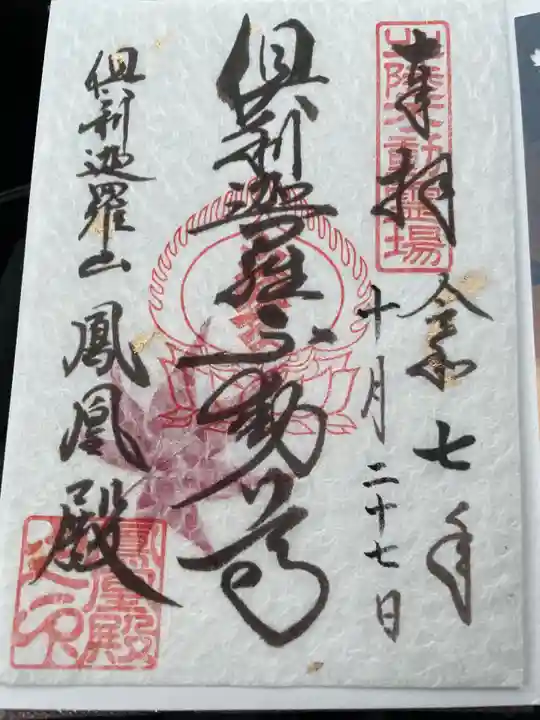 奉拝
北陸不動霊場
令和七年
十月二十七日
倶利迦羅不動尊
倶利迦羅山 鳳凰殿
鳳凰殿之印